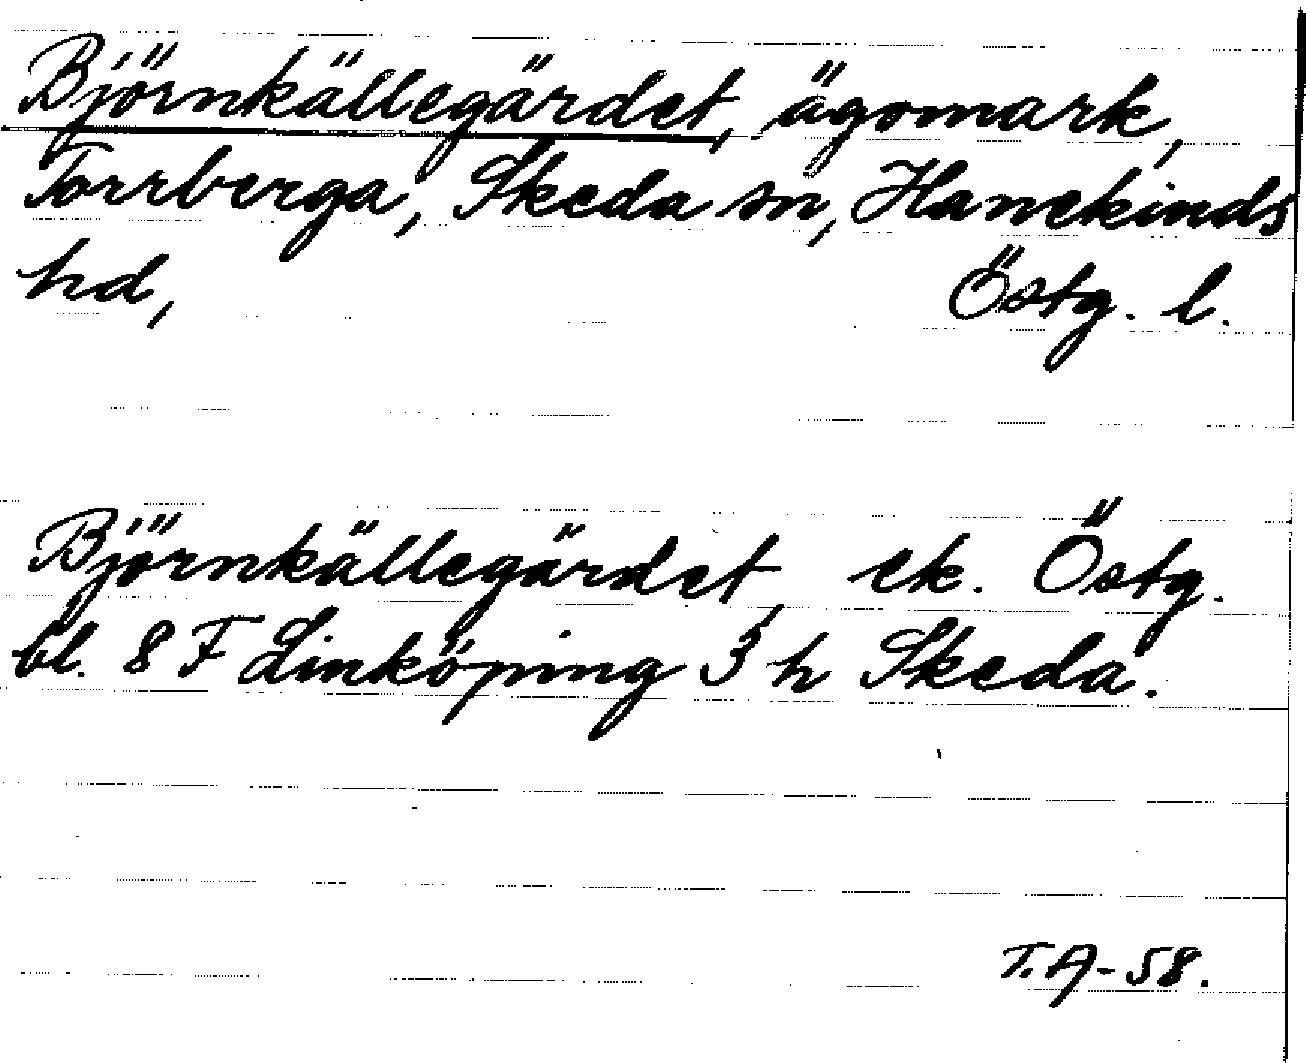 Björnkällegärdet, ägomark,
Torrberga, Skeda sn, Hanekinds
hd, Östg. l.
Björnkällegärdet, ek. Östg.
bl. 8 F Linköping 3 h Skeda.
T.A-58.